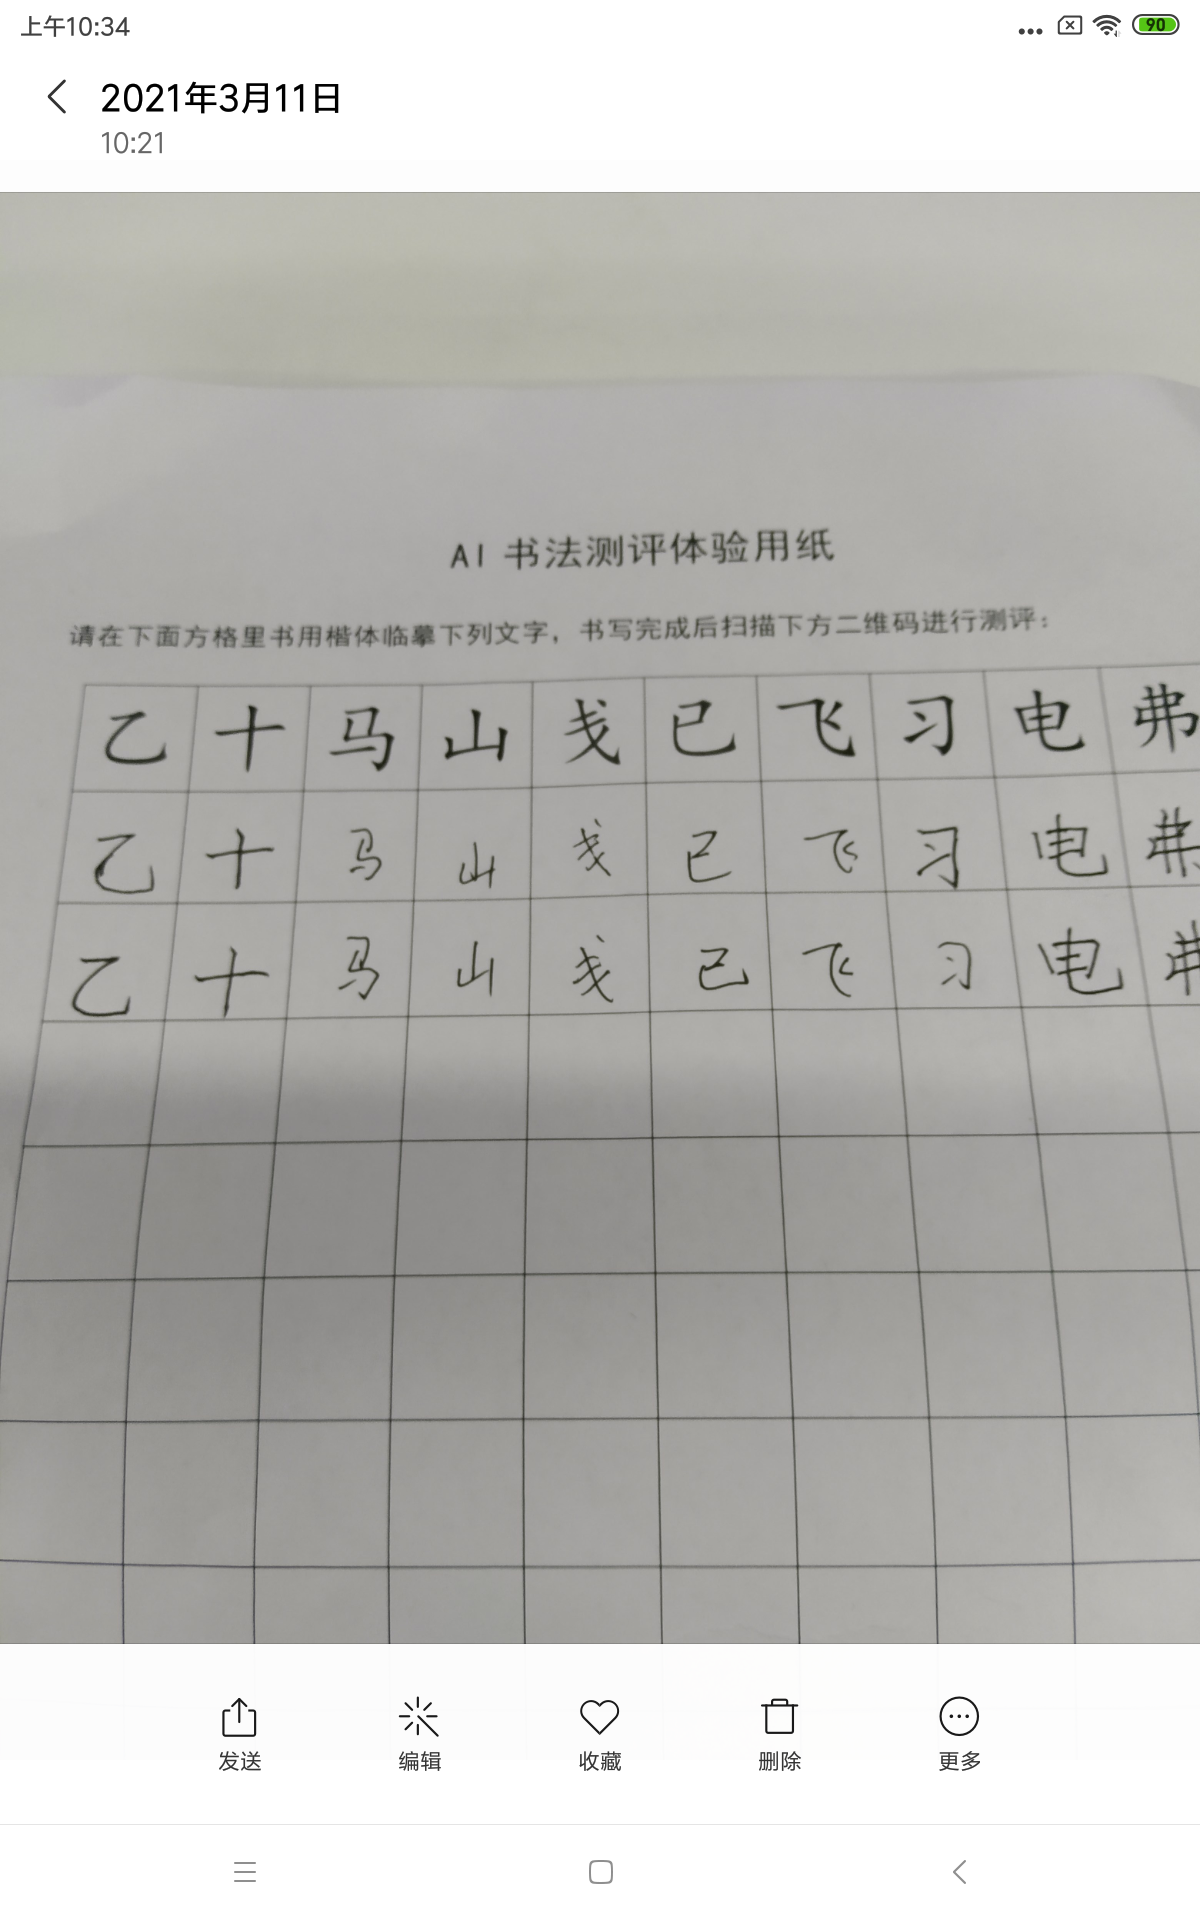 上午10:34
90
2021年3月11日
10:21
AI 书法测评体验用纸
请在下面方格里书用楷体临摹下列文字，书写完成后扫描下方二维码进行测评：
乙 十 马 山 戋 已 飞 习 电 弗
乙 十 马 山 戋 已 飞 习 电 弗
乙 十 马 山 戋 已 飞 习 电
发送 编辑 收藏 删除 更多